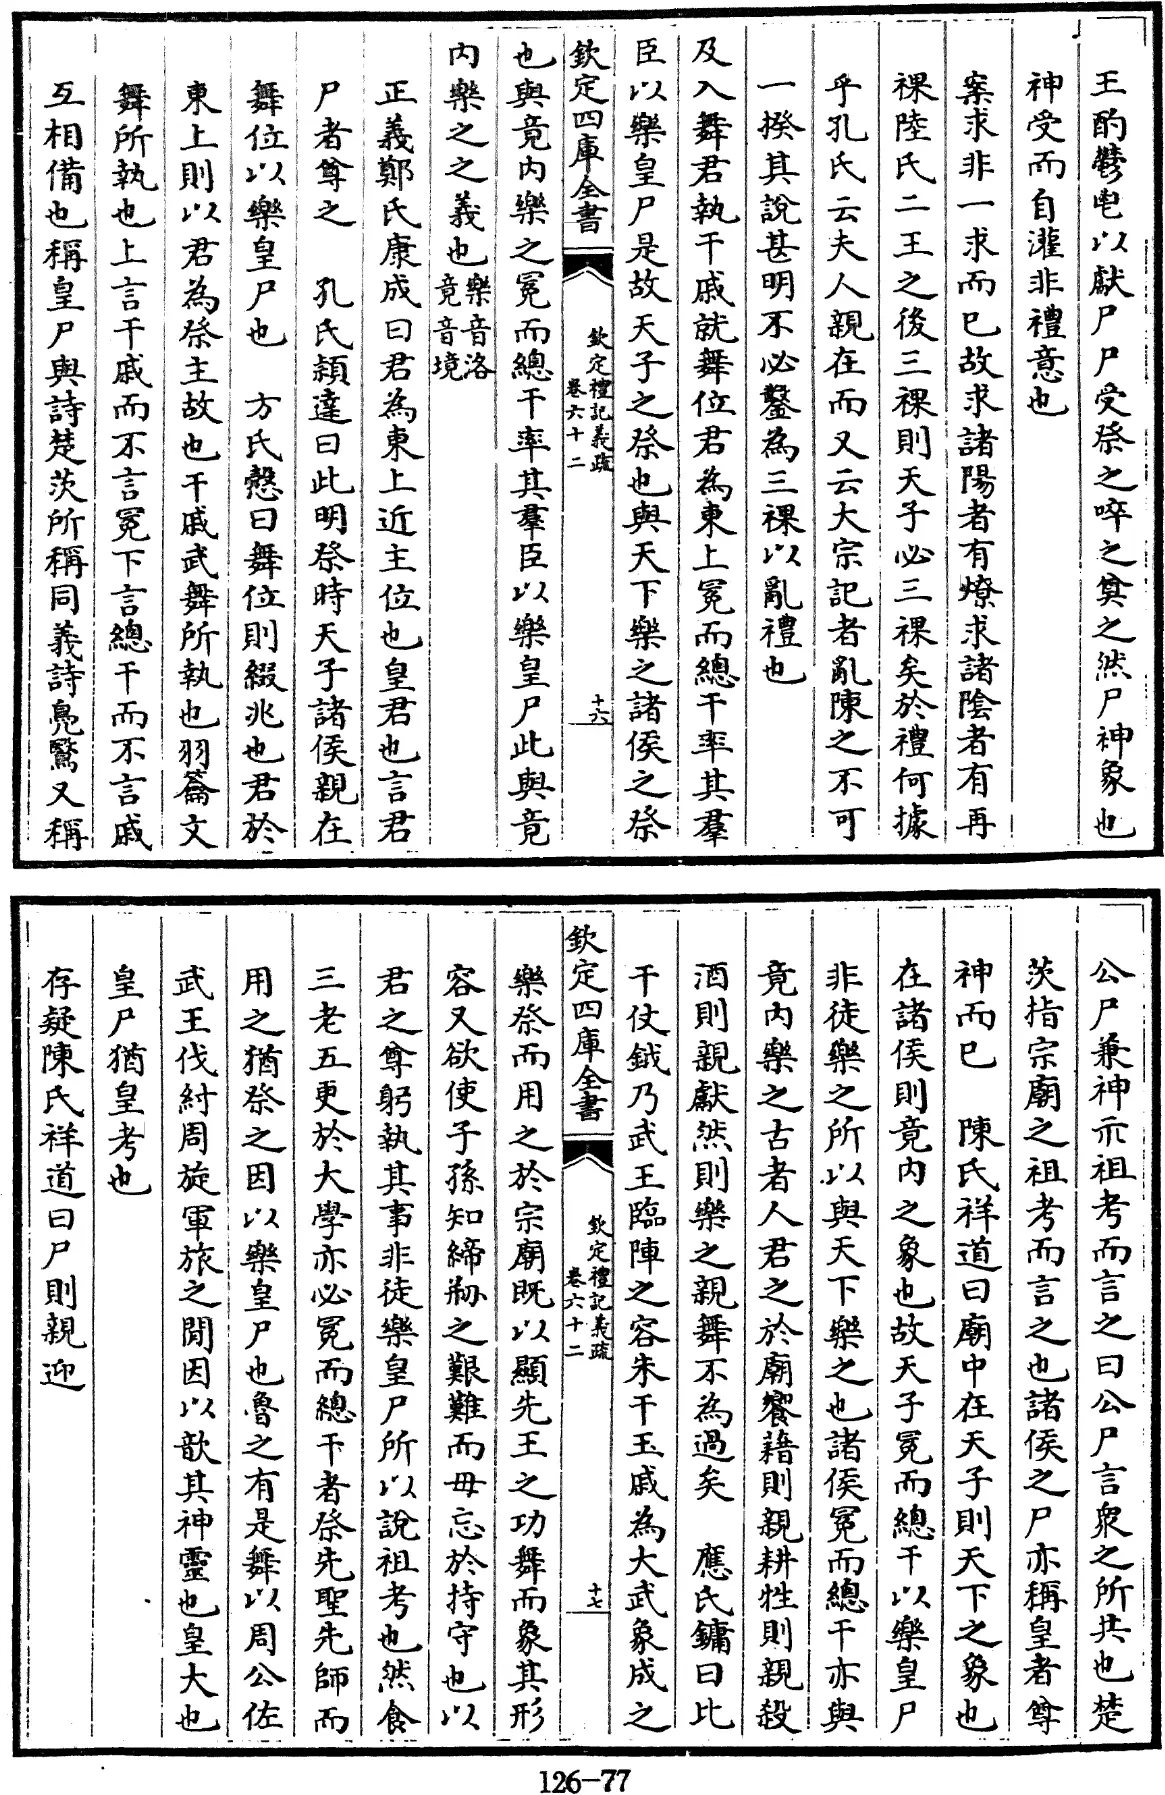 王酌鬱鬯以獻尸尸受祭之啐之奠之然尸神象也
神受而自灌非禮意也
案求非一求而已故求諸陽者有燎求諸陰者有再
祼陸氏二王之後三祼則天子必三祼矣於禮何據
乎孔氏云夫人親在而又云大宗記者亂陳之不可
一揆其說甚明不必鑿為三祼以亂禮也
及入舞君執干戚就舞位君為東上冕而總干率其羣
臣以樂皇尸是故天子之祭也與天下樂之諸侯之祭
欽定四庫全書
欽定禮記義疏
卷六十二
十六
也與竟內樂之冕而總干率其羣臣以樂皇尸此與竟
內樂之之義也樂音洛
竟音境
正義鄭氏康成曰君為東上近主位也皇君也言君
尸者尊之 孔氏頴達曰此明祭時天子諸侯親在
舞位以樂皇尸也 方氏慤曰舞位則綴兆也君於
東上則以君為祭主故也干戚武舞所執也羽籥文
舞所執也上言干戚而不言冕下言總干而不言戚
互相備也稱皇尸與詩楚茨所稱同義詩鳧鷖又稱
公尸兼神示祖考而言之曰公尸言衆之所共也楚
茨指宗廟之祖考而言之也諸侯之尸亦稱皇者尊
神而已 陳氏祥道曰廟中在天子則天下之象也
在諸侯則竟內之象也故天子冕而總干以樂皇尸
非徒樂之所以與天下樂之也諸侯冕而總干亦與
竟內樂之古者人君之於廟饗藉則親耕牲則親殺
酒則親獻然則樂之親舞不為過矣 應氏鏞曰比
干仗鉞乃武王臨陣之容朱干玉戚為大武象成之
欽定四庫全書
欽定禮記義疏
卷六十二
十七
樂祭而用之於宗廟既以顯先王之功舞而象其形
容又欲使子孫知締剏之艱難而毋忘於持守也以
君之尊躬執其事非徒樂皇尸所以說祖考也然食
三老五更於大學亦必冕而總干者祭先聖先師而
用之猶祭之因以樂皇尸也魯之有是舞以周公佐
武王伐紂周旋軍旅之閒因以歆其神靈也皇大也
皇尸猶皇考也
存疑陳氏祥道曰尸則親迎
126-77